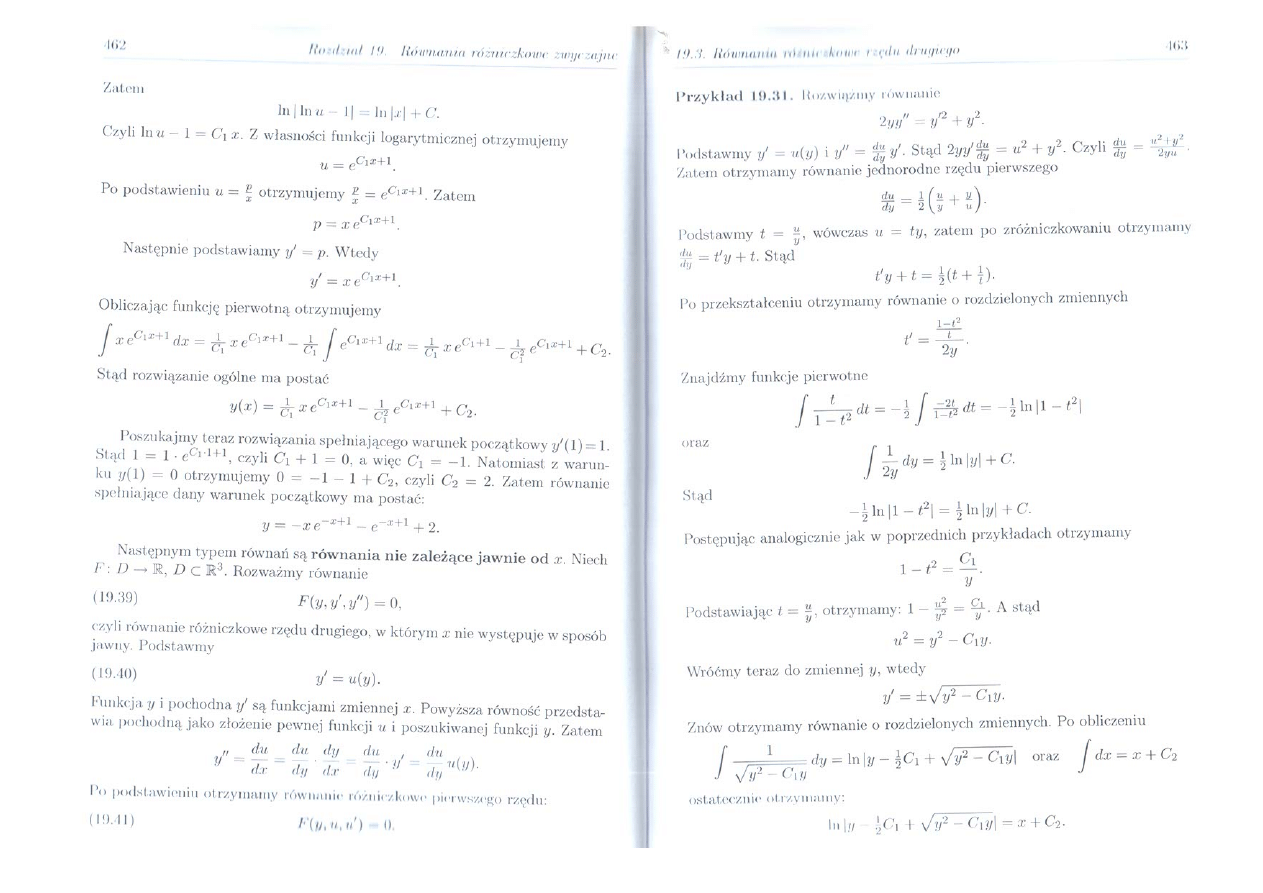 462
Rozdział 19. Równania różniczkowe zwyczajne
Zatem
ln | ln u − 1| = ln |x| + C.
Czyli ln u − 1 = C₁ x. Z własności funkcji logarytmicznej otrzymujemy
u = e^{C₁x+1}.
Po podstawieniu u = p/x otrzymujemy p/x = e^{C₁x+1}. Zatem
p = x e^{C₁x+1}.
Następnie podstawiamy y′ = p. Wtedy
y′ = x e^{C₁x+1}.
Obliczając funkcję pierwotną otrzymujemy
∫ x e^{C₁x+1} dx = 1/C₁ x e^{C₁x+1} − 1/C₁ ∫ e^{C₁x+1} dx = 1/C₁ x e^{C₁+1} − 1/C₁² e^{C₁x+1} + C₂.
Stąd rozwiązanie ogólne ma postać
y(x) = 1/C₁ x e^{C₁x+1} − 1/C₁² e^{C₁x+1} + C₂.
Poszukajmy teraz rozwiązania spełniającego warunek początkowy y′(1) = 1.
Stąd 1 = 1 · e^{C₁·1+1}, czyli C₁ + 1 = 0, a więc C₁ = −1. Natomiast z warun-
ku y(1) = 0 otrzymujemy 0 = −1 − 1 + C₂, czyli C₂ = 2. Zatem równanie
spełniające dany warunek początkowy ma postać:
y = −x e^{−x+1} − e^{−x+1} + 2.
Następnym typem równań są równania nie zależące jawnie od x. Niech
F : D → ℝ, D ⊂ ℝ³. Rozważmy równanie
(19.39) F(y, y′, y″) = 0,
czyli równanie różniczkowe rzędu drugiego, w którym x nie występuje w sposób
jawny. Podstawmy
(19.40) y′ = u(y).
Funkcja y i pochodna y′ są funkcjami zmiennej x. Powyższa równość przedsta-
wia pochodną jako złożenie pewnej funkcji u i poszukiwanej funkcji y. Zatem
y″ = du/dx = du/dy · dy/dx = du/dy · y′ = du/dy u(y).
Po podstawieniu otrzymamy równanie różniczkowe pierwszego rzędu:
(19.41) F(y, u, u′) = 0.
19.3. Równania różniczkowe rzędu drugiego
463
Przykład 19.31. Rozwiążmy równanie
2yy″ = y′² + y².
Podstawmy y′ = u(y) i y″ = du/dy y′. Stąd 2yy′ du/dy = u² + y². Czyli du/dy = (u²+y²)/2yu.
Zatem otrzymamy równanie jednorodne rzędu pierwszego
du/dy = 1/2 (u/y + y/u).
Podstawmy t = u/y, wówczas u = ty, zatem po zróżniczkowaniu otrzymamy
du/dy = t′y + t. Stąd
t′y + t = 1/2(t + 1/t).
Po przekształceniu otrzymamy równanie o rozdzielonych zmiennych
t′ = ((1−t²)/t)/2y.
Znajdźmy funkcje pierwotne
∫ t/(1 − t²) dt = −1/2 ∫ −2t/(1−t²) dt = −1/2 ln |1 − t²|
oraz
∫ 1/2y dy = 1/2 ln |y| + C.
Stąd
−1/2 ln |1 − t²| = 1/2 ln |y| + C.
Postępując analogicznie jak w poprzednich przykładach otrzymamy
1 − t² = C₁/y.
Podstawiając t = u/y, otrzymamy: 1 − u²/y² = C₁/y. A stąd
u² = y² − C₁y.
Wróćmy teraz do zmiennej y, wtedy
y′ = ±√(y² − C₁y).
Znów otrzymamy równanie o rozdzielonych zmiennych. Po obliczeniu
∫ 1/√(y² − C₁y) dy = ln |y − 1/2 C₁ + √(y² − C₁y)| oraz ∫ dx = x + C₂
ostatecznie otrzymamy:
ln |y − 1/2 C₁ + √(y² − C₁y)| = x + C₂.